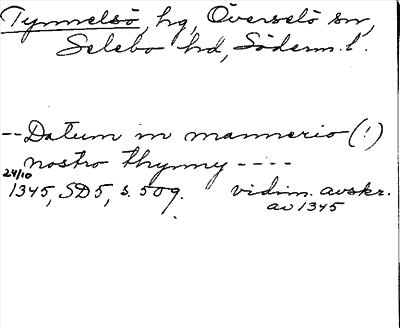 Tynnelsö, hg, Överselö sn,
Selebo hd, Söderm. l.
-- Datum in mannerio (!)
nostro thynny ----
24/10
1345, SD5, s. 509. vidim. avskr.
av 1345